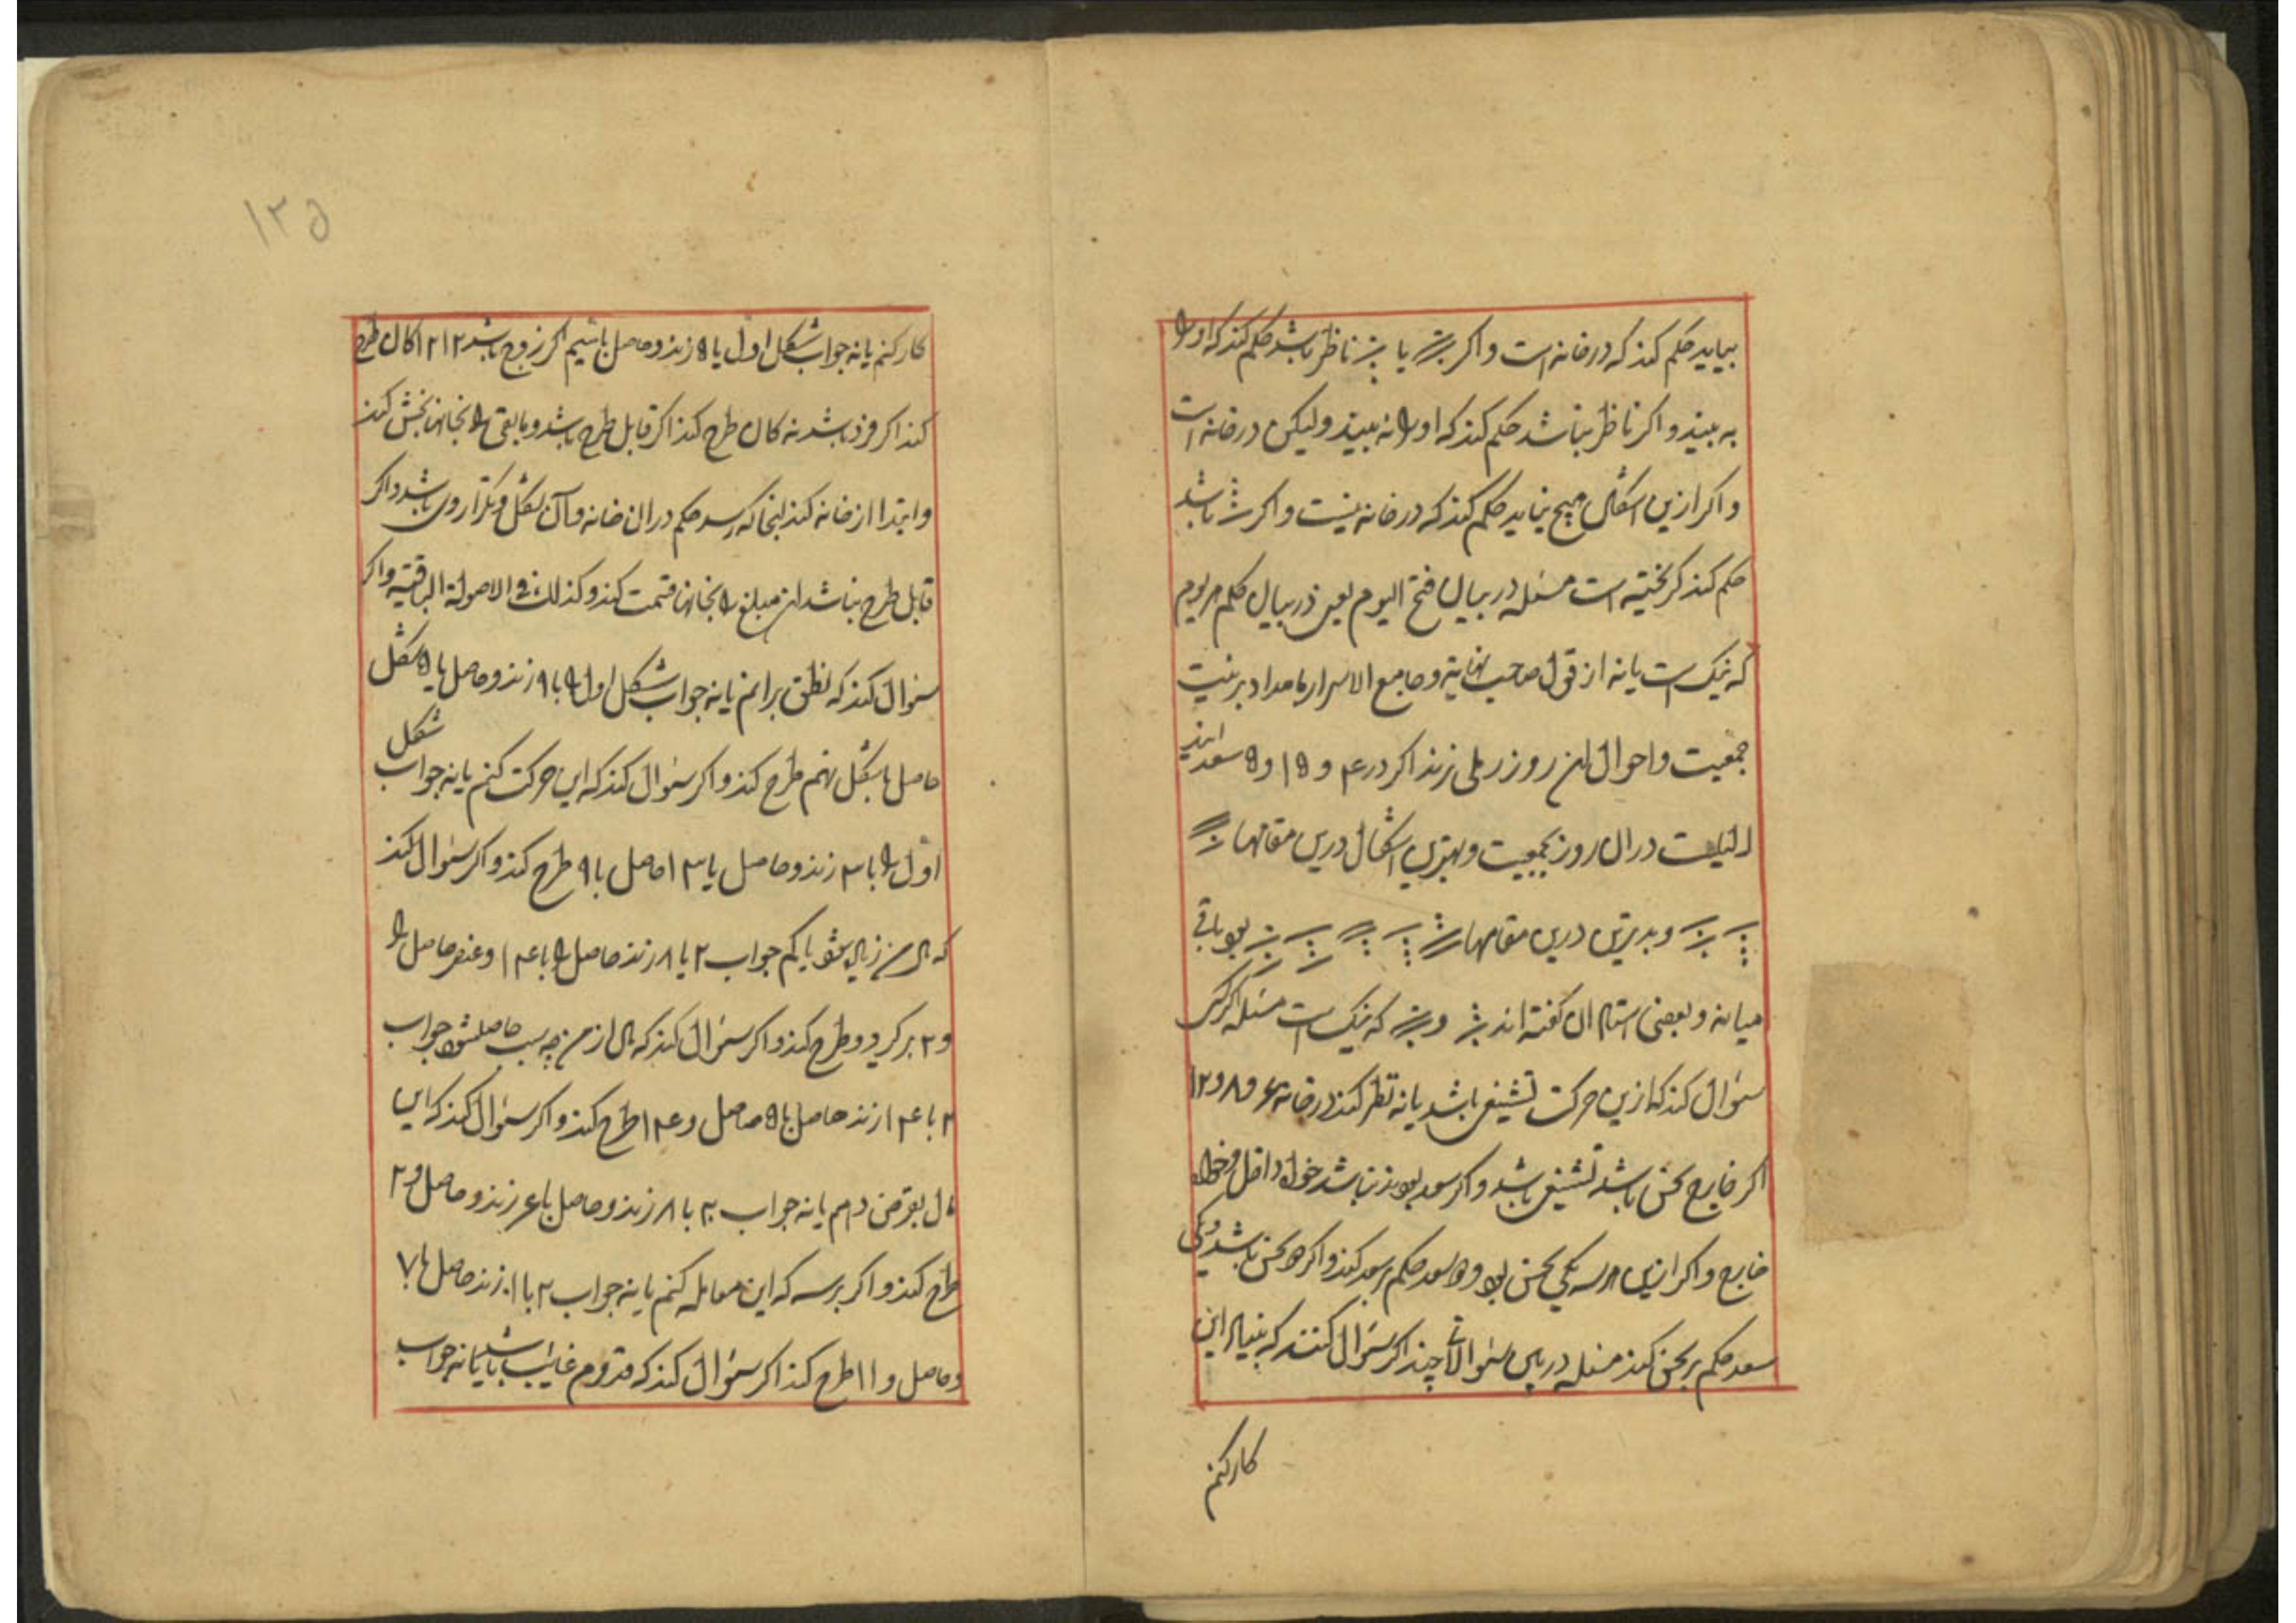 بیاید حکم کند که در خانه است و اکر یا ناظر باشد حکم کند که او را
به بیند و اکر ناظر نباشد حکم کند که او را نه بیند ولیکن در خانه است
و اکر ازین اشکال هیچ نیاید حکم کند که در خانه نیست و اکر باشد
حکم کند کریخته است مسئله در بیان فتح الیوم یعنی در بیان حکم هر یوم
که نیک است یا نه از قول صاحب نهایة و جامع الاسرار بامداد بر نیت
جمعیت و احوال ان روز رملی زند اکر در ۴ و ۱۵ و ۵ سعد ایند
دران روز بجمعیت و بهترین اشکال درین مقامها
و بدترین درین مقامها باقی
میانه و بعضی استادان کفته اند و که نیک است مسئله اکر کسی
سوال کند که ازین حرکت تشنیع باشد یا نه نظر کند در خانه ۶ و ۸ و ۱۲
اکر خارج نحس باشد تشنیع باشد و اکر سعد بود نباشد خواه داخل و خواه
خارج و اکر ازین هر سه یکی نحس بود و دو سعد حکم بر سعد کند و اکر دو نحس باشد و یکی
سعد حکم بر نحس کند مسئله در بیان سوالات چند اکر سوال کنند که بنیاد این
کارکنم
۱۳۵
کارکنم یا نه جواب شکل اول با ۵ زند و حاصل باشیم اکر زوج باشد ۱۲ ۱۲ کان طرح
کند اکر فرد باشد نه کان طرح کند اکر قابل طرح باشد و مابقی را بخانها بخش کند
و ابتدا از خانه کند انجا که رسد حکم دران خانه و آن شکل و تکرار وی باشد و اکر
قابل طرح نباشد این مبلغ را بخانها قسمت کند و کذلک فی الاصولة الباقیه و اکر
سوال کند که نطق برانم یا نه جواب شکل اول را با ۹ زند و حاصل با ۵ شکل
حاصل با شکل نهم طرح کند و اکر سوال کند که این حرکت کنم یا نه جواب شکل
اول را با ۳ زند و حاصل با ۱۳ حاصل با ۹ طرح کند و اکر سوال کند
که جواب ۲ با ۸ زند حاصل را با ۱۴ و عنصر حاصل را
و ۲ بر کرد و طرح کند و اکر سوال کند که مال از من چه سبب حاصل شود جواب
۲ با ۱۴ زند حاصل با ۵ حاصل و ۱۴ طرح کند و اکر سوال کند که این
مال بقرض دهم یا نه جواب ۲ با ۸ زند و حاصل با ۶ زند و حاصل و ۲
طرح کند و اکر پرسد که این معامله کنم یا نه جواب ۲ با ۱۰ زند حاصل با ۷
و حاصل و ۱۱ طرح کند اکر سوال کند که قدوم غایب باشد یا نه جواب